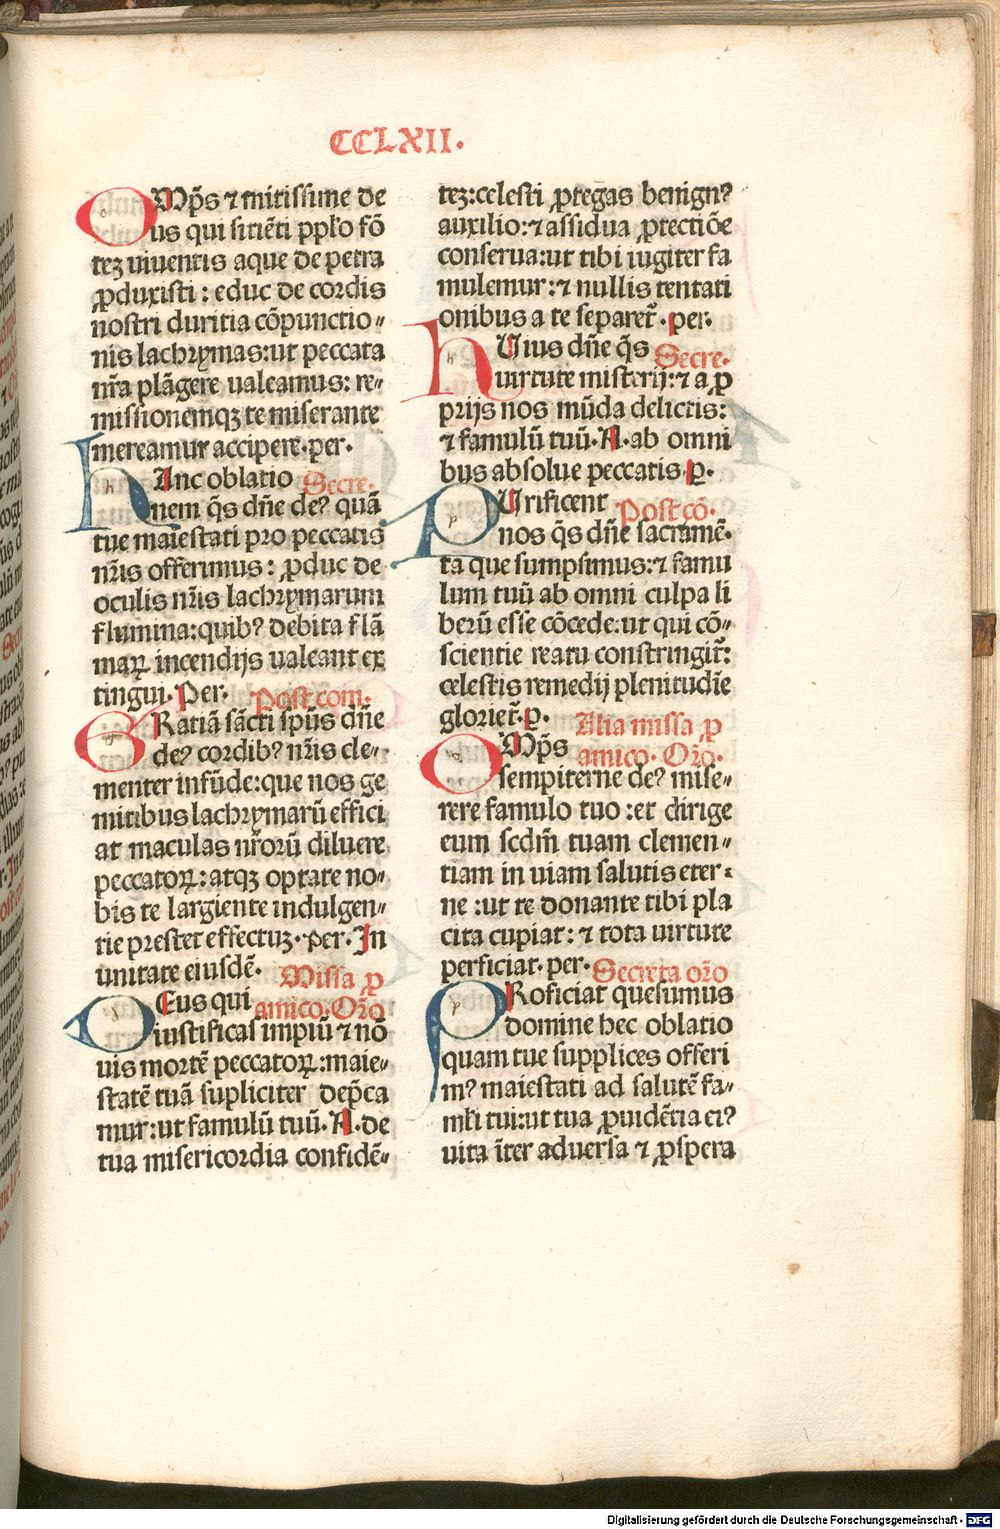 CCLXII.
OMp̄s ⁊ mitissime de
us qui sitiēti pplo fō
tez viuentis aque de petra
ꝓduxisti : educ de cordis
nostri duritia cōpunctio-
nis lachrymas:ut peccata
nr̄a plāgere valeamus: re-
missionemqꝫ te miserante
mereamur accipere. per.
HAnc oblatio Secre.
nem q̄s dn̄e deꝰ quā
tue maiestati pro peccatis
nr̄is offerimus : ꝓduc de
oculis nr̄is lachrymarum
flumina:quibꝰ debita flā
maꝝ incendijs ualeant ex
tingui. Per. Post com.
GRatiā sācti spūs dn̄e
deꝰ cordibꝰ nr̄is cle-
menter infūde:que nos ge
mitibus lachrymarū effici
at maculas nr̄orū diluere
peccatoꝝ: atqꝫ optate no-
bis te largiente indulgen-
tie prestet effectuꝫ. per. In
unitate eiusdē. Missa ꝓ
DEus qui amico. Oro
iustificas impiū ⁊ nō
uis mortē peccatoꝝ:maie-
statē tuā supliciter dep̄ca
mur:ut famulū tuū. A. de
tua misericordia confidē-
tez:celesti ꝓtegas benignꝰ
auxilio:⁊ assidua ꝓtectiōe
conserua:ut tibi iugiter fa
mulemur:⁊ nullis tentati
onibus a te separet̄. per.
HUius dn̄e q̄s Secre.
uirtute misterij:⁊ a ꝓ
prijs nos mūda delictis:
⁊ famulū tuū. A. ab omni
bus absolue peccatis. p.
PUrificent Post cō.
nos q̄s dn̄e sacramē-
ta que sumpsimus:⁊ famu
lum tuū ab omni culpa li
berū esse cōcede:ut qui cō-
scientie reatu constringit̄:
celestis remedij plenitudīe
gloriet̄. p. Alia missa ꝓ
OMp̄s amico. Oro.
sempiterne deꝰ mise-
rere famulo tuo : et dirige
eum scdm̄ tuam clemen-
tiam in uiam salutis eter-
ne : ut te donante tibi pla
cita cupiat: ⁊ tota uirtute
perficiat. per. Secreta oro
PRoficiat quesumus
domine hec oblatio
quam tue supplices offeri
mꝰ maiestati ad salutē fa-
mli tui:ut tua ꝓuidētia eiꝰ
uita īter aduersa ⁊ ꝓspera
Digitalisierung gefördert durch die Deutsche Forschungsgemeinschaft - DFG